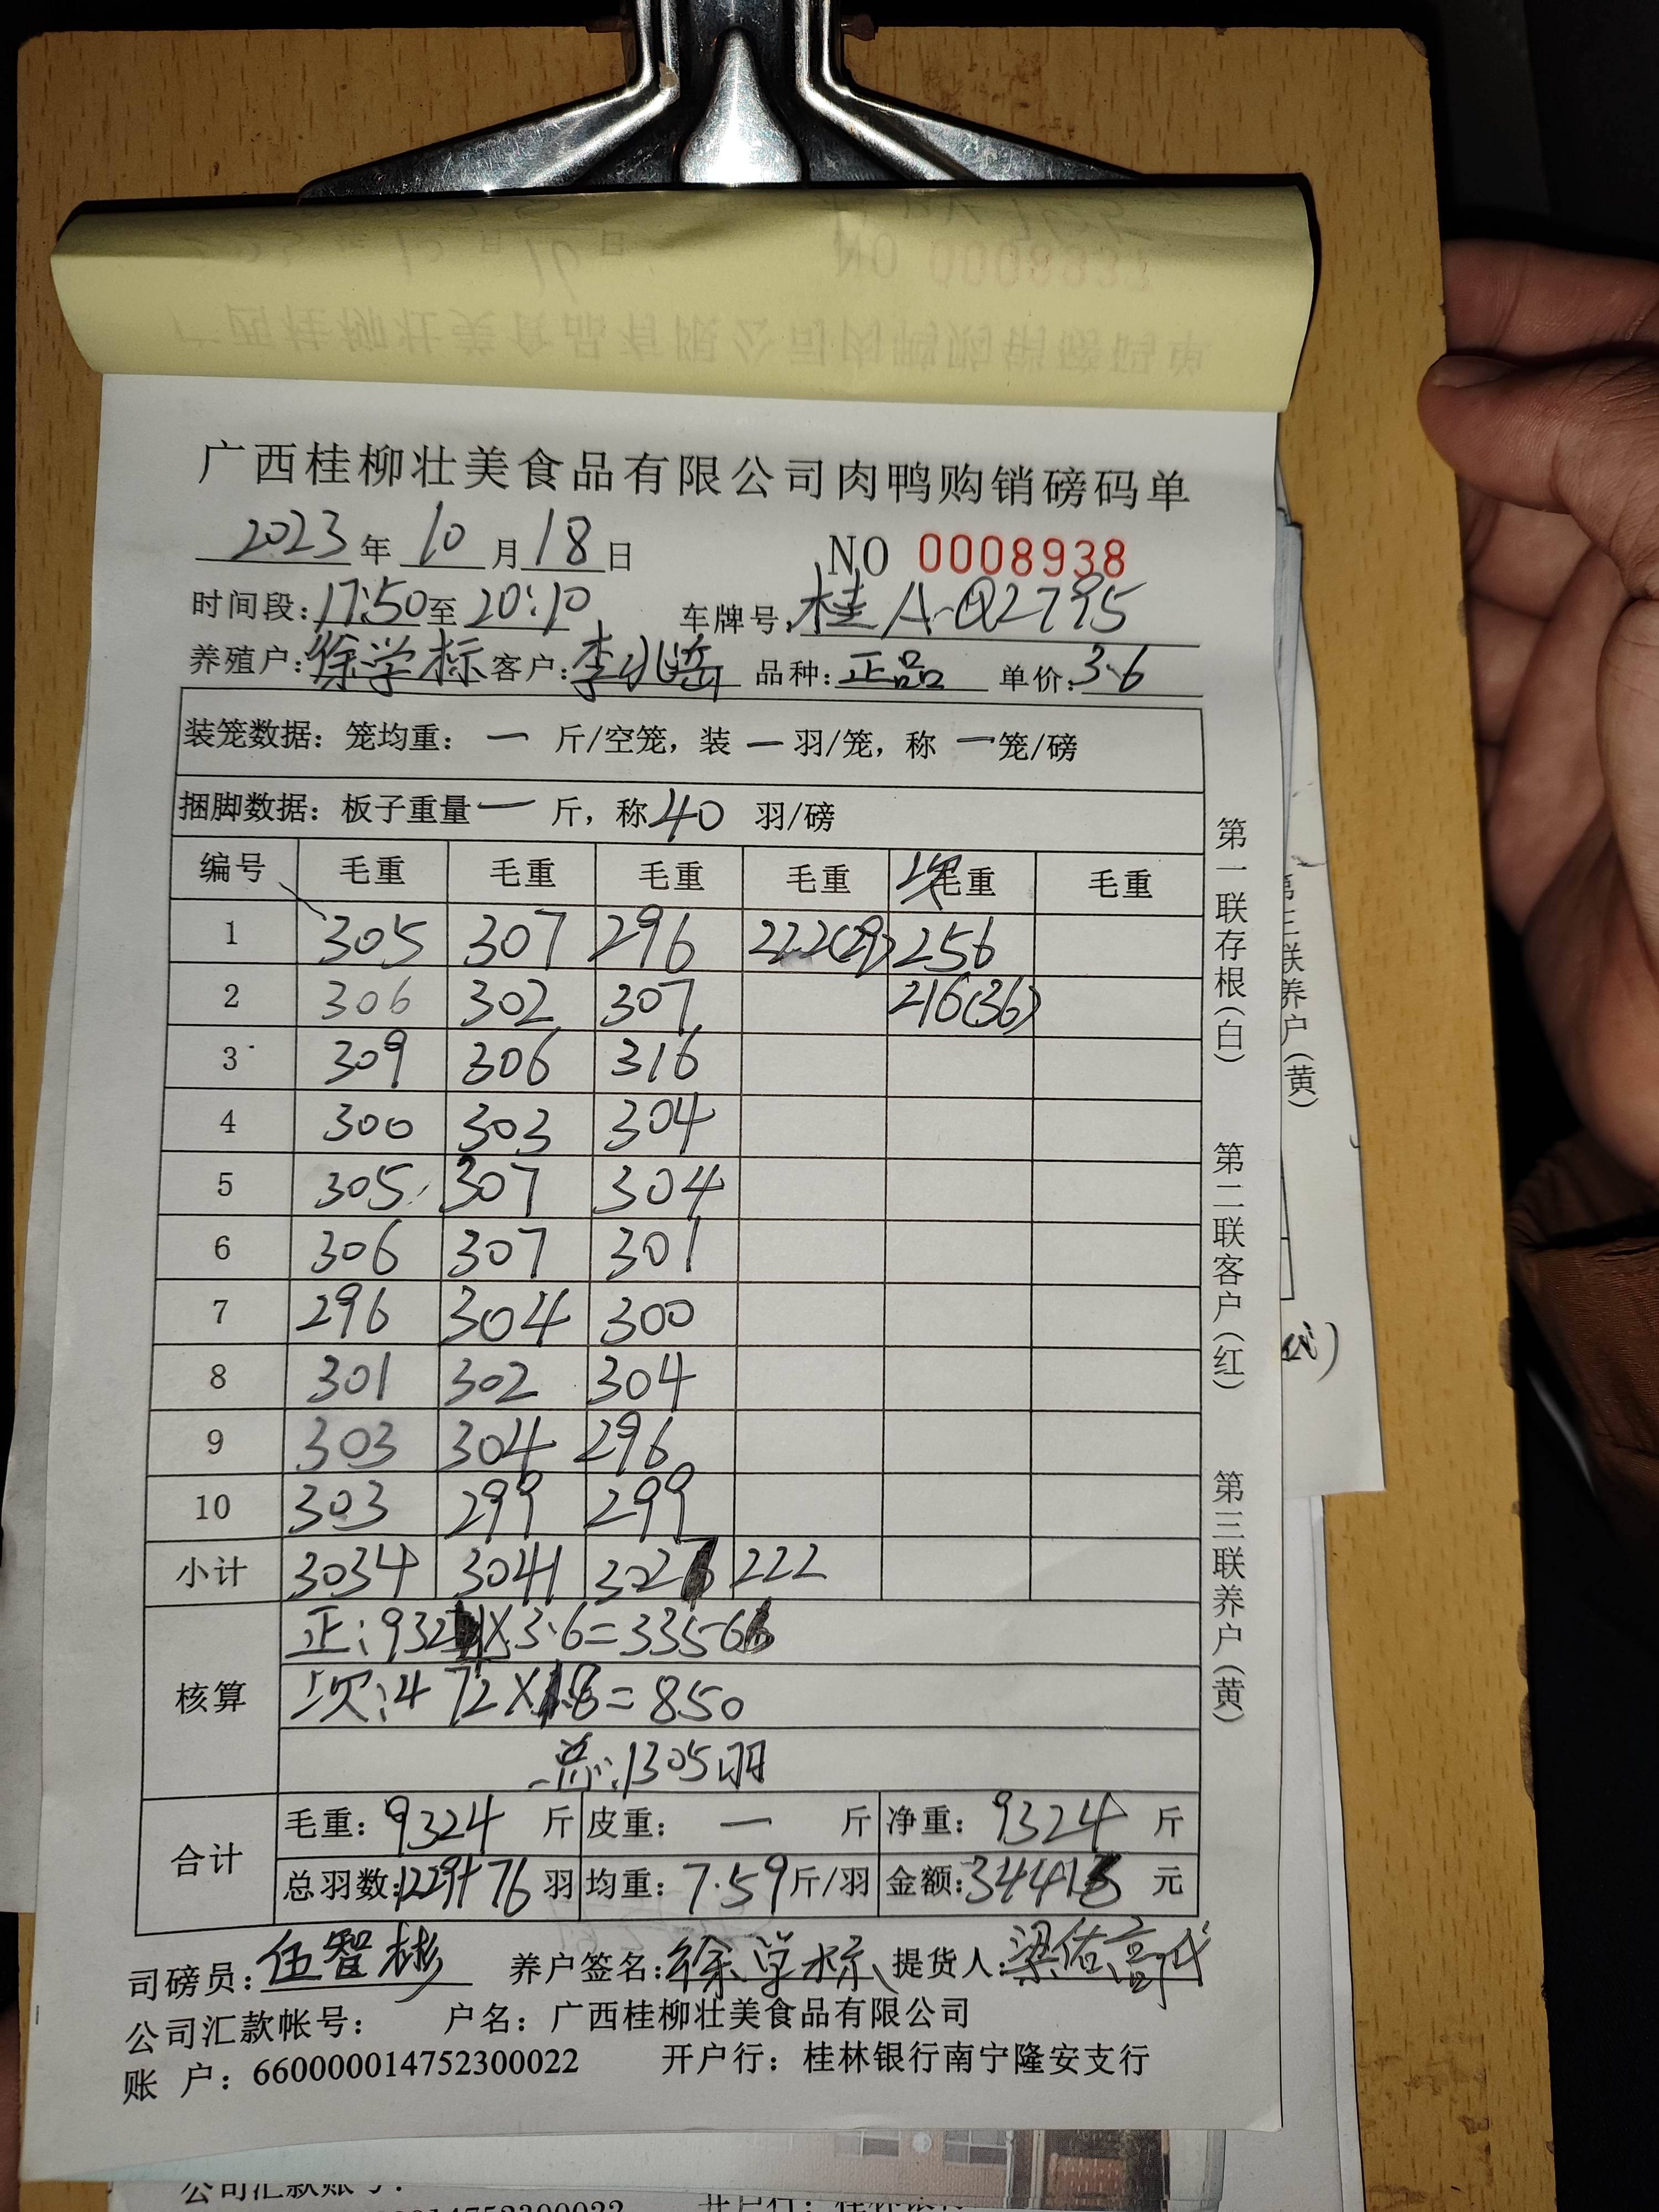 广西桂柳壮美食品有限公司肉鸭购销磅码单
2023年10月18日 NO 0008938
时间段:17:50至20:10 车牌号:桂A·Q2795
养殖户:徐学标 客户:李兆 品种:正品 单价:3.6
装笼数据: 笼均重: 一 斤/空笼, 装 一 羽/笼, 称 一 笼/磅
捆脚数据: 板子重量 一 斤, 称 40 羽/磅
编号 毛重 毛重 毛重 毛重 次毛重 毛重
1 305 307 296 222(29) 256
2 306 302 307 216(36)
3 309 306 316
4 300 303 304
5 305 307 304
6 306 307 301
7 296 304 300
8 301 302 304
9 303 304 296
10 303 299 299
小计 3034 3041 3027 222
核算
正:932 X3.6=3356
次:472X1.8=850
总:1305羽
合计
毛重: 9324 斤 皮重: 一 斤 净重: 9324 斤
总羽数:1229+76 羽 均重: 7.59 斤/羽 金额:3441 元
司磅员:伍智彬 养户签名:徐学标 提货人:梁佑高代
公司汇款帐号: 户名: 广西桂柳壮美食品有限公司
账 户: 660000014752300022 开户行: 桂林银行南宁隆安支行
第一联存根(白) 第二联客户(红) 第三联养户(黄)
第三联养户(黄)
NO 0008937
广西桂柳壮美食品有限公司肉鸭购销磅码单